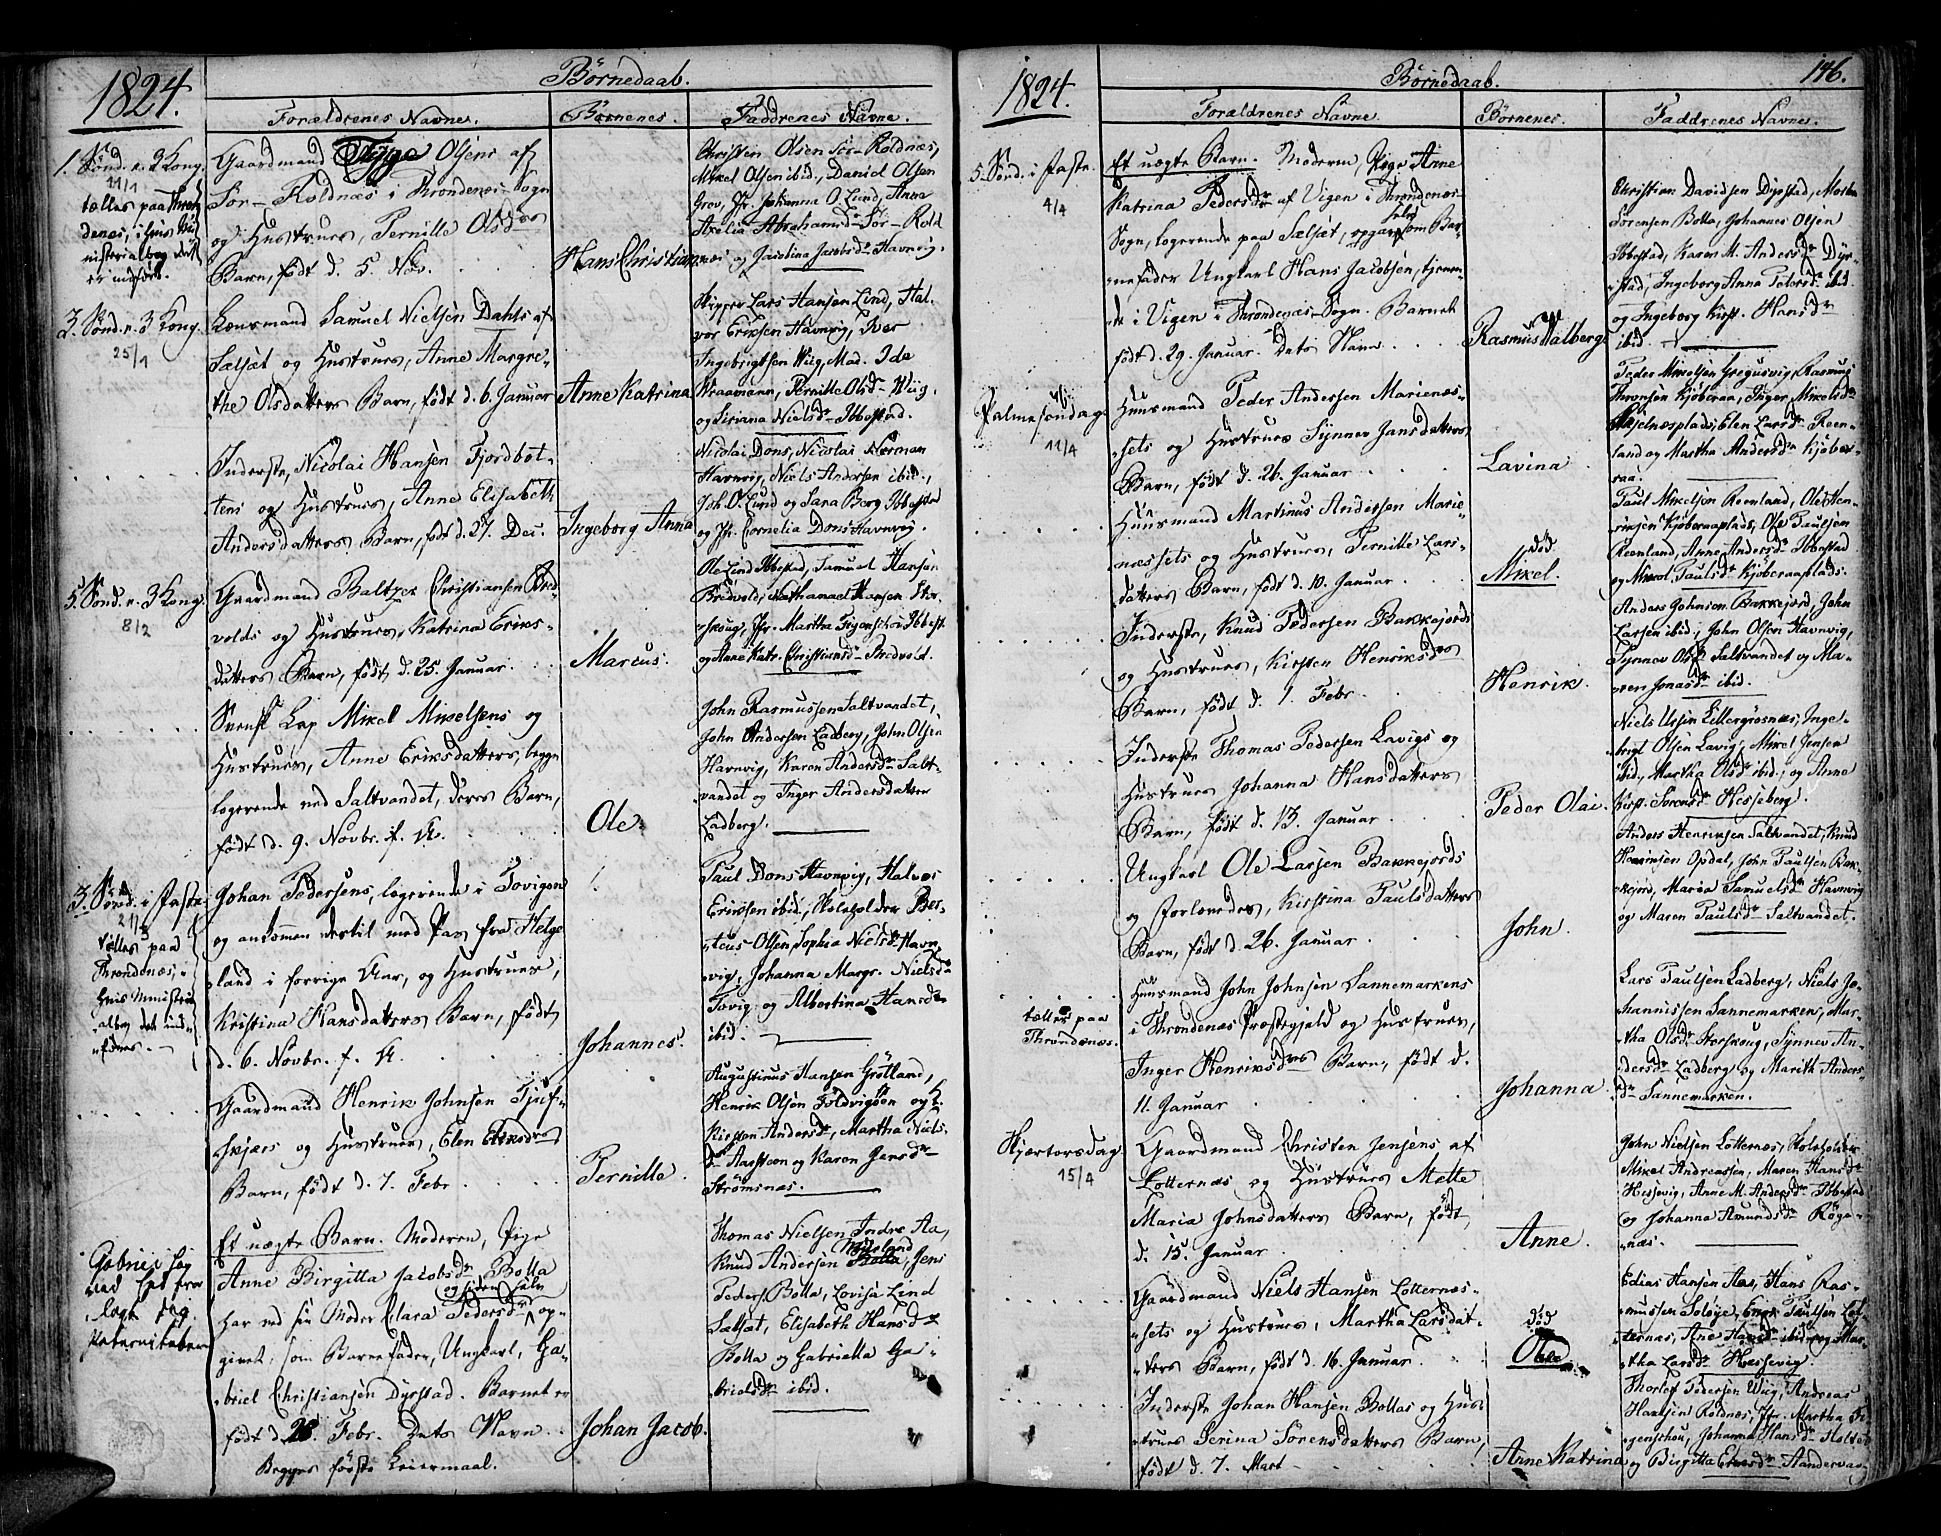 1824.
Børnedaab.
Forældrenes Navne.
Børnenes.
Faddrenes Navne.
1. Sønd. e. 3 Kong.
11/1
tælles paa Thron
denes, i hvis Mi
nisterialbog det
er indført.
Gaardmand Tygge Olsens af
Sør-Roldnæs i Throndenæs Sogn
og Hustrues, Pernille Olsdrs
Barn, født d. 5. Nov.
Hans Christian
Christen Olsen Sør-Roldnæs,
Mikel Olsen ibid., Daniel Olsen
Grov, Jfr. Johanna O. Lund, Anne
Axelia Abrahamsdr Sør-Rold
næs og Jacolina Jacobsdr Havnvig.
3. Sønd. e. 3 Kong.
25/1
Lensmand Samuel Nielsen Dahls af
Salsæt og Hustrues, Anne Margre-
the Olsdatters Barn, født d. 6. Januar
Anne Katrina
Skipper Lars Hansen Lind, Hal-
vor Eriksen Havnvig, Iver
Ingebrigtsen Wiig, Mad. Ida
Kraamann, Pernille Olsdr Wiig,
og Siriana Nielsdr Ibbestad.
Inderste, Nicolai Hansen Fjordbot-
tens og Hustrues, Anne Elisabeth
Andersdatters Barn, født d. 27. Dec.
Ingeborg Anna
Nicolai Dons, Nicolai Normann
Havnvig, Niels Andersen ibid.,
Joh. O. Lund og Sara Berg Ibbestad
og Jfr. Cornelia Dons Havnvig.
5. Sønd. e. 3 Kong.
8/2
Gaardmand Baltzer Christiansen Bred-
volds og Hustrues, Katrina Eriks-
datters Barn, født d. 25. Januar.
Marcus.
Ole Lind Ibbestad, Samuel Hansen
Bredvold, Nathanael Hansen Stor-
skoug, Jfr. Martha Figenschou Ibbest.
og Ane Katr. Christiansdr Bredvold.
Svensk Lap Mikel Mikelsens og
Hustrues, Anne Eriksdatters, begge
logerende ved Saltvandet, deres Barn,
født d. 9. Novbr. f. A.
Ole.
John Rasmussen Saltvandet,
John Andersen Ladberg, John Olsen
Havnvig, Karen Andersdr Salt-
vandet og Inger Andersdatter
Ladberg.
3. Sønd. i Faste.
21/3
tælles paa
Throndenæs,
hvis Ministeri-
albog det ind-
føres.
Johan Pedersens, logerende i Tovigen
og ankommen dertil med Pas fra Helge
land i forrige Aar, og Hustrues,
Kristina Hansdatters Barn, født
d. 6. Novbr. f. A.
Johannes.
Paul Dons Havnvig, Halvor
Eriksen ibid., Skoleholder Ber-
teus Olsen, Sophia Nielsdr Havn-
vig, Johanna Margr. Nielsdr
Tovig og Albertina Hansdr
ibid.
Gaardmand Henrik Johnsen Tjuf-
skjærs og Hustrues, Elen Eriksdrs
Barn, født d. 7. Febr.
Pernille.
Augustinus Hansen Grøtland,
Henrik Olsen Foldvigøen og
Kirsten Andersdr, Martha Niels-
dr Aarsteen og Karen Jensdr
Strømsnæs.
Gabriel
har
fra
lagt sig
Paterniteten
Et uægte Barn. Moderen, Pige
Anne Birgitta Jacobsdr Bolla
og siden selv
har ved sin Moder Clara Pedersdr op-
givet, som Barnefader, Ungkarl, Ga-
briel Christiansen Dyrstad. Barnet er
født d. 28. Febr. Dets Navn.
Begges første Leiermaal.
Johan Jacob.
Thomas Nielsen Indre Aa,
Knud Andersen Bolla, Jens
Peders. Bolla, Lovisa Lind
Salsæt, Elisabeth Hansdr
Bolla og Gabriella Ga-
brielsdr ibid.
1824.
Børnedaab.
146.
Forældrenes Navne.
Børnenes.
Faddrenes Navne.
5. Sønd. i Faste.
4/4
Et uægte Barn. Moderen, Pige Anne
Katrina Pedersdr af Vigen i Throndenæs-
Sogn, logerende paa Salsæt, opgav selv som Bar-
nefader Ungkarl Hans Jacobsen, tjenen-
de i Vigen i Throndenæs Sogn. Barnet
født d. 29. Januar. Dets Navn
Rasmus Walberg
Christian Davidsen Dyrstad, Morten
Sørensen Bolla, Johannes Olsen
Ibbestad, Karen M. Andersdr Dyr-
stad, Ingeborg Anna Petersdr ibid.
og Ingeborg Kirst. Hansdr
ibid.
Palmesøndag
11/4
Huusmand Peder Andersen Marienæs-
sets og Hustrues Synnev Jansdatters
Barn, født d. 26. Januar
Lavina
Peder Mikelsen Gregusvig, Rasmus
Thronsen Kjøberaa, Inger Mikelsdr
Skjelnesplads, Elen Larsdr Reen-
land og Martha Andersdr Kjøber-
raa.
Huusmand Martinus Andersen Marie-
næssets og Hustrues, Pernille Lars-
datters Barn, født d. 10. Januar
død
Mikel.
Paul Mikelsen Reenland, Ole Hen-
riksen Kjøberaaplads, Ole Paulsen
Reenland, Anne Andersdr Ibbestad
og Nikol. Paulsdr Kjøberaaplads.
Inderste, Knud Pedersen Bakkejords
og Hustrues, Kirsten Henriksdrs
Barn, født d. 1. Febr.
Henrik.
Anders Johnson Bakkejord, John
Larsen ibid., John Olsen Havnvig,
Synnev Olsdr Saltvandet og Ma-
ren Jonasdr ibid.
Inderste Thomas Pedersen Lavigs og
Hustrues Johanna Hansdatters
Barn, født d. 13. Januar
Peder Olai.
Niels Ursin Littergrosnæs, Ingel-
brigt Olsen Lavig, Mikel Jensen
ibid., Martha Olsdr ibid., og Anne
Kirst. Sørensdr Hesseberg.
Ungkarl Ole Larsen Bakkejords
og Forlovedes, Kirstina Paulsdatters
Barn, født d. 26. Januar
John.
Anders Henriksen Saltvandet, Knud
Henriksen Opdal, John Paulsen Bak-
kejord, Maria Samuelsdr Havnvig
og Maren Paulsdr Saltvandet.
tælles paa
Throndenæs.
Huusmand John Johnsen Sannemarkens
i Throndenæs Præstegjeld og Hustrues,
Inger Henriksdrs Barn, født d.
11. Januar
Johanna.
Lars Paulsen Ladberg, Niels Jo-
hannissen Sannemarken, Mar-
tha Olsdr Storskoug, Synnev An-
dersdr Ladberg og Marith Anders-
dr Sannemarken.
Skjærtorsdag
15/4
Gaardmand Christen Jensens af
Lotternæs og Hustrues Mette
Maria Johnsdatters Barn, født
d. 15. Januar
Anne.
John Nielsen Lotternæs, Skoleholder
Mikel Andreassen, Maren Hansdr
Hessevig, Anne M. Andersdr Ibbestad
og Johanna Amundsdr Røge-
næs.
Gaardmand Niels Hansen Lotternæs-
sets og Hustrues, Martha Larsdat-
ters Barn, født d. 16. Januar
død
Ole
Edias Hansen Aas, Hans Ras-
mussen Soløye, Enok Paulsen Lot-
ternæs, Ane Hansdr ibid. og Mar-
tha Larsdr Hessevig.
Inderste Johan Hansen Bollas og Hus-
trues Serina Sørensdatters Barn,
født d. 7. Mart
Anne Katrina
Thorlef Pedersen Wiig, Andreas
Hansen Roldnæs, Jfr. Martha Fi-
genschou, Johanna Hansdr Holter
og Birgitta Eriksdr Aandervaag